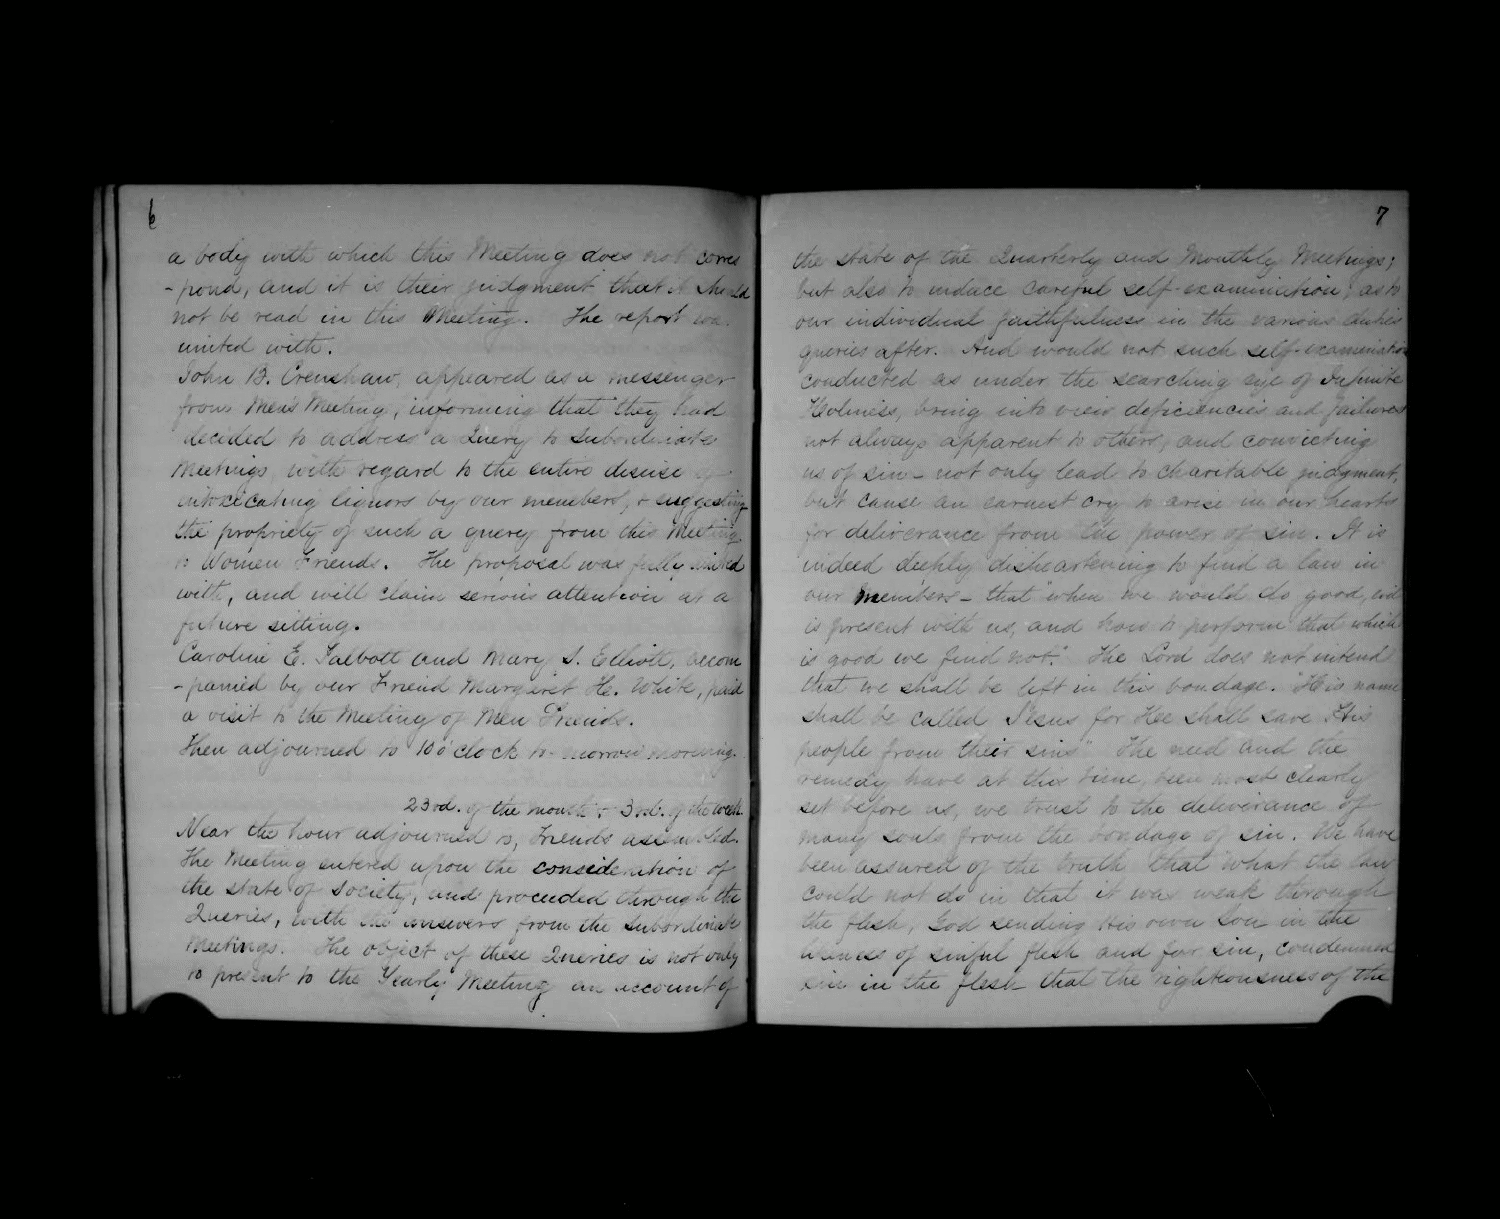 6
a body with which this Meeting does not corres
-pond, and it is their judgment that it should
not be read in this Meeting. The report was
united with.
John B. Crenshaw, appeared as a messenger
from Men's Meeting, informing that they had
decided to address a Query to Subordinate
Meetings, with regard to the entire disuse of
intoxicating liquors by our members, & suggesting
the propriety of such a query from this Meeting
to Women Friends. The proposal was fully united
with, and will claim serious attention at a
future sitting.
Caroline E. Talbott and Mary S. Elliott, accom
-panied by our Friend Margaret He. White, paid
a visit to the Meeting of Men Friends.
Then adjourned to 10 o'clock to-morrow morning.
23rd. of the month & 3rd. of the week.
Near the hour adjourned to, Friends assembled.
The Meeting entered upon the consideration of
the state of Society, and proceeded through the
Queries, with the answers from the Subordinate
Meetings. The object of these Queries is not only
to present to the Yearly Meeting an account of
7
the state of the Quarterly and Monthly Meetings;
but also to induce careful self-examination, as to
our individual faithfulness in the various duties
queries after. And would not such self-examination
conducted as under the searching eye of Infinite
Holiness, bring into view deficiencies and failures
not always apparent to others, and convicting
us of sin - not only lead to charitable judgment,
but cause an earnest cry to arise in our hearts
for deliverance from the power of sin. It is
indeed deeply disheartening to find a law in
our members - that "when we would do good, evil
is present with us, and how to perform that which
is good we find not." The Lord does not intend
that we shall be left in this bondage. "His name
shall be called Jesus for Hee shall save His
people from their sins" The need and the
remedy have at this time, been most clearly
set before us, we trust to the deliverance of
many souls from the bondage of sin. We have
been assured of the truth that "what the law
could not do in that it was weak through
the flesh, God sending His own Son in the
likeness of sinful flesh and for sin, condemned
sin in the flesh - that the righteousness of the